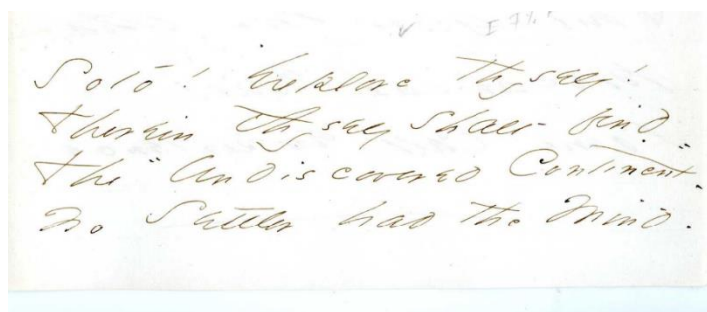 Soto! Explore thyself!
Therein thyself shalt find
The "Undiscovered Continent"
No Settler had the Mind.